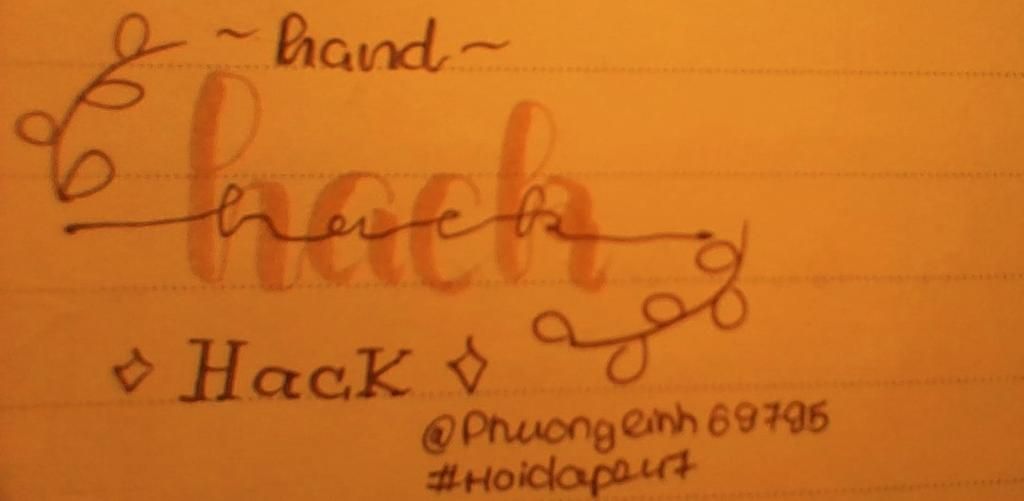 ~ hand ~
hack
hack
Hack
@Phuonglinh69795
#Hoidap247